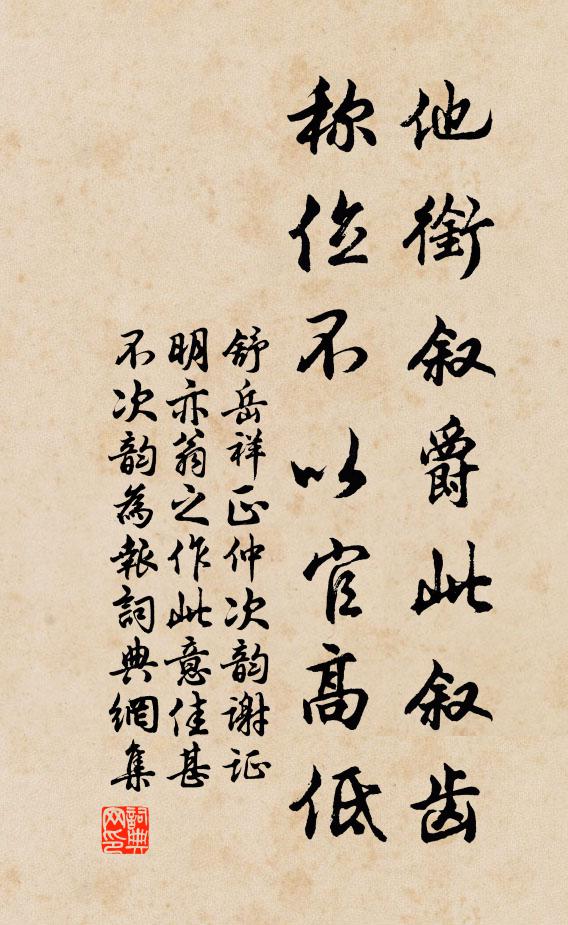 他銜叙爵此叙齿
称位不以官高低
舒岳祥正仲次韵謝证
明亦翁之作此意佳甚
不次韵為報詞典網集
詞典
网印